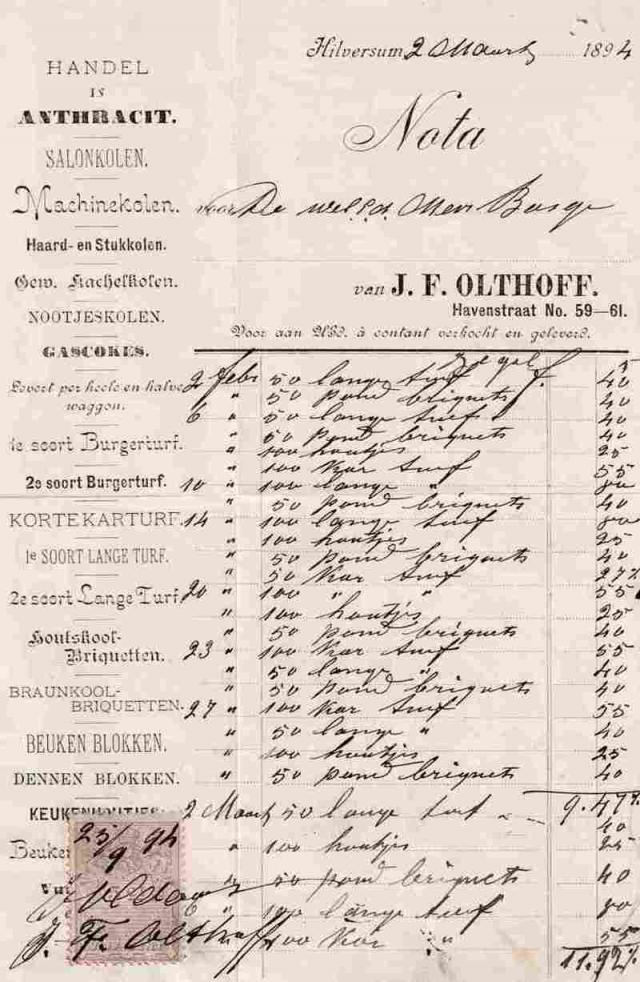 Hilversum, 2 Maart 1894
HANDEL
IN
ANTHRACIT.
SALONKOLEN.
Machinekolen.
Haard- en Stukkolen.
Gew. Kachelkolen.
NOOTJESKOLEN.
GASCOKES.
Levert per heele en halve
waggon.
1e soort Burgerturf.
2e soort Burgerturf.
KORTE KARTURF.
1e SOORT LANGE TURF.
2e soort Lange Turf.
Houtskool-
Briquetten.
BRAUNKOOL-
BRIQUETTEN.
BEUKEN BLOKKEN.
DENNEN BLOKKEN.
KEUKENHOUTJES
Beuken
Vuu
Nota
voor De
van J. F. OLTHOFF.
Havenstraat No. 59—61.
Voor aan UEd. à contant verkocht en geleverd.
Zegel f. 5
2 Febr 50 lange turf 40
" 50 pond briquets 40
6 " 50 lange turf 40
" 50 pond briquets 40
" 100 houtjes 25
" 100 Kar turf 55
10 " 100 lange " 80
" 50 pond briquets 40
14 " 100 lange turf 80
" 100 houtjes 25
" 50 pond briquets 40
" 50 Kar turf 27½
20 " 100 " " 55
" 100 houtjes 25
" 50 pond briquets 40
23 " 100 Kar turf 55
" 50 lange " 40
" 50 pond briquets 40
27 " 100 Kar turf 55
" 50 lange " 40
" 100 houtjes 25
" 50 pond briquets 40
9.47½
2 Maart 50 lange turf 40
" 100 houtjes 25
" 50 pond briquets 40
6 " 100 lange turf 80
" 100 Kar " 55
11.92½
25/9 94
Voldaan
J. F. Olthoff